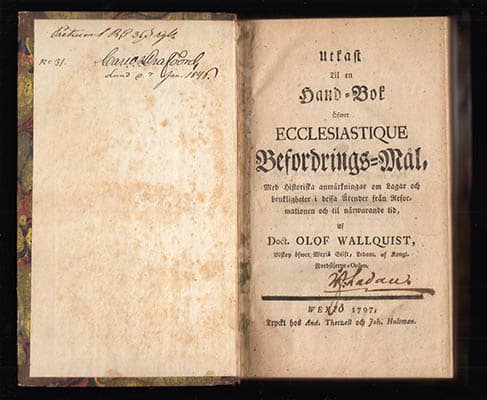 No 31.
Lund d. 7 Jan. 1846.
Utkast
Til en
Hand=Bok
öfwer
ECCLESIASTIQUE
Befordrings=Mål,
Med Historiska anmärkningar om Lagar och
brukligheter i dessa Ärender från Refor-
mationen och til närwarande tid,
Af
Doct. OLOF WALLQUIST,
Biskop öfwer Wexiö Stift, Ledam. af Kongl.
Nordstjerne=Orden.
WEXIÖ 1797,
Tryckt hos And. Thetzell och Joh. Hultman.